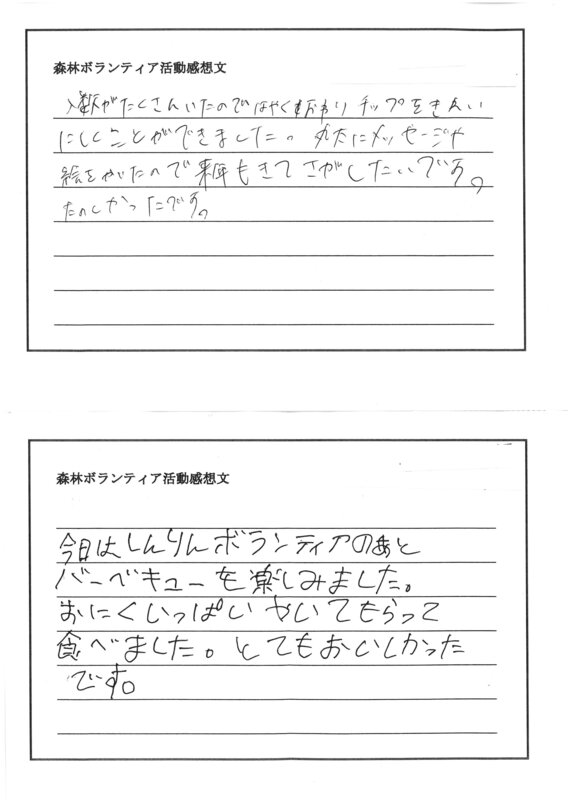 森林ボランティア活動感想文
人数がたくさんいたのではやくおわり チップをきれい
にしくことができました。丸太にメッセージや
絵をかいたので来年もきてさがしたいです。
たのしかったです。
森林ボランティア活動感想文
今日はしんりんボランティアのあと
バーベキューを楽しみました。
おにくいっぱいやいてもらって
食べました。とてもおいしかった
です。